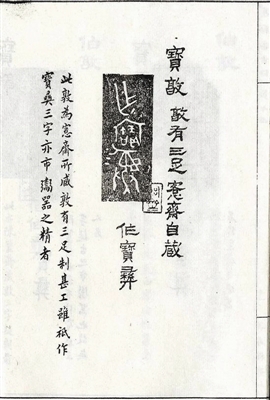 寶敦 敦有三足 愙齋自藏
乍寶彝
作寶彝
此敦為愙齋所藏敦有三足制甚工雖祇作
寶彝三字亦市鬻器之精者